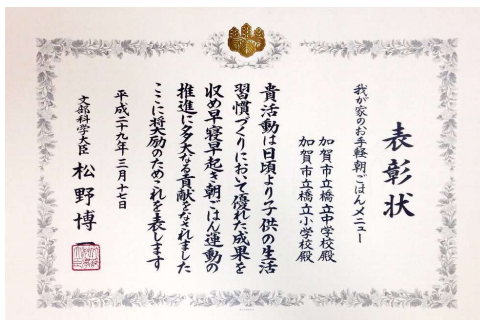 表彰状
我が家のお手軽朝ごはんメニュー
加賀市立橋立中学校殿
加賀市立橋立小学校殿
貴活動は日頃より子供の生活
習慣づくりにおいて優れた成果を
収め早寝早起き朝ごはん運動の
推進に多大なる貢献をなされました
ここに将来の奨励のためこれを表します
平成二十九年三月十七日
文部科学大臣 松野博一